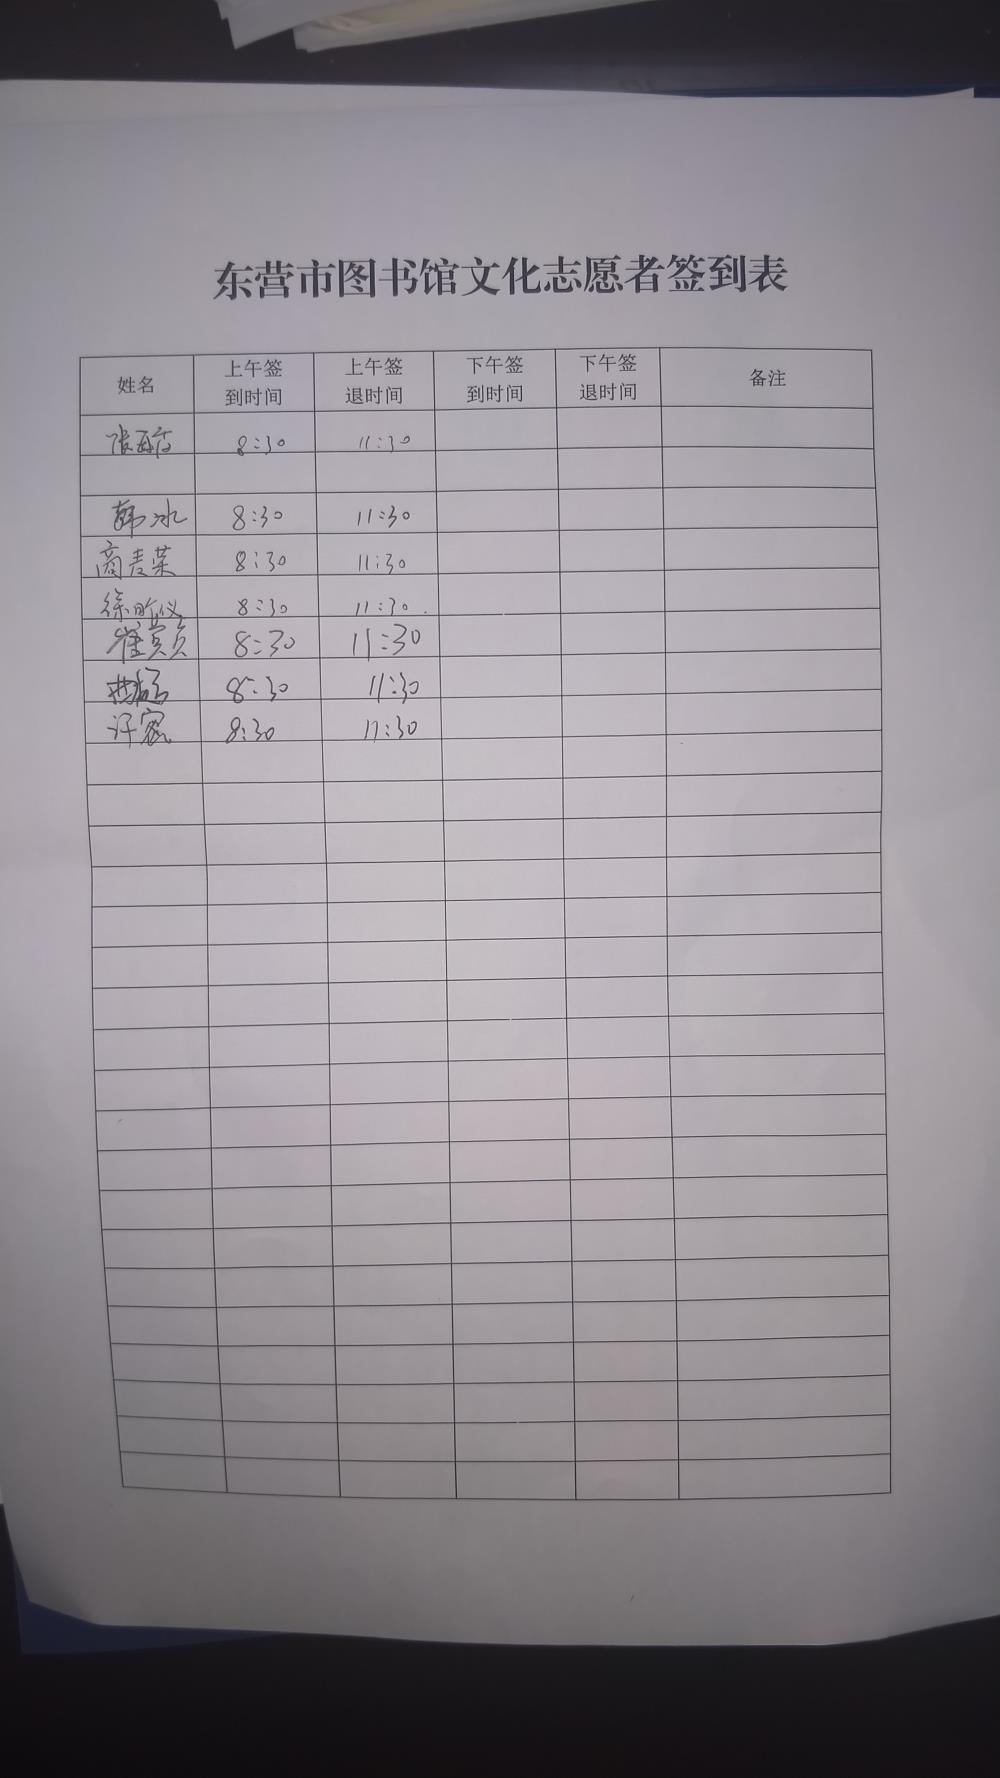 东营市图书馆文化志愿者签到表
姓名 上午签到时间 上午签退时间 下午签到时间 下午签退时间 备注
张 8:30 11:30
韩冰 8:30 11:30
商麦荣 8:30 11:30
徐昕仪 8:30 11:30
崔宾宾 8:30 11:30
8:30 11:30
许宸 8:30 11:30